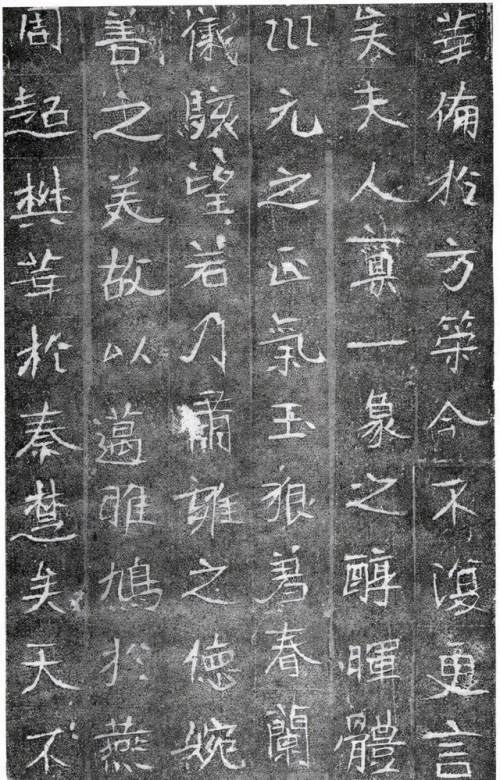 華備於方策今不復更言
矣夫人稟一象之醇暉體
巛元之正氣玉狼著春蘭
儀駭望若乃肅雍之德婉
善之美故以邁雎鳩於燕
周超樊華於秦楚矣天不